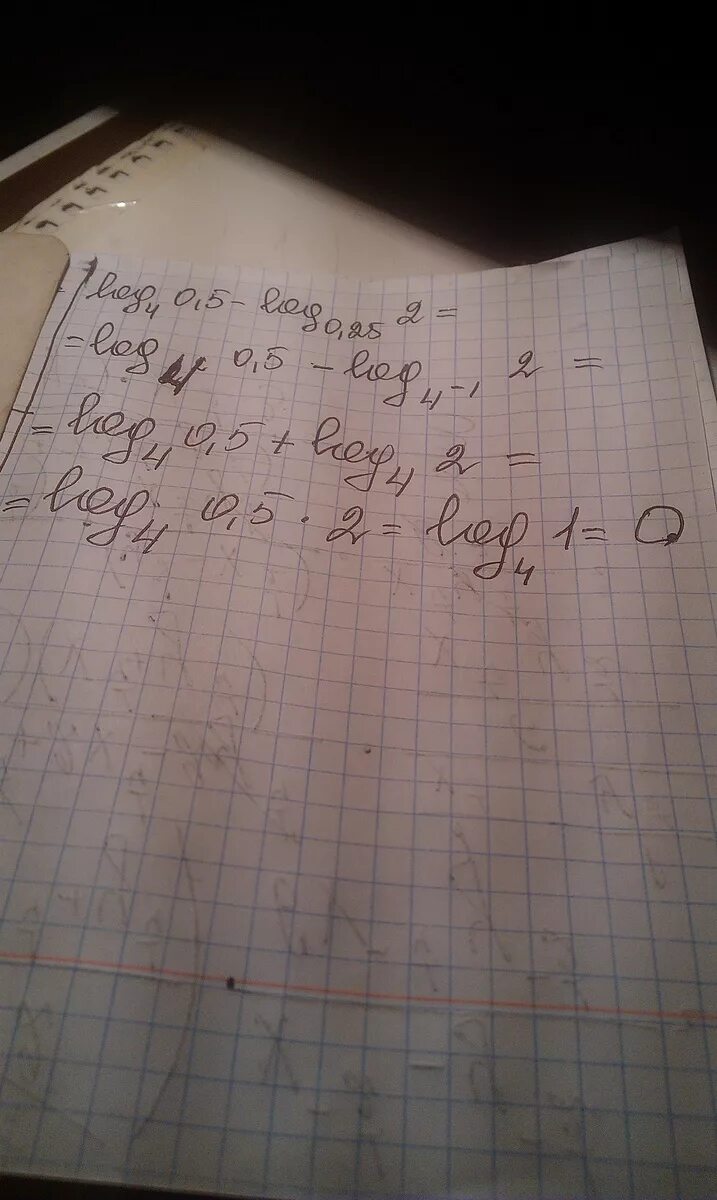 log₄ 0,5 - log₀,₂₅ 2 =
= log₄ 0,5 - log₄₋₁ 2 =
= log₄ 0,5 + log₄ 2 =
= log₄ 0,5 · 2 = log₄ 1 = 0